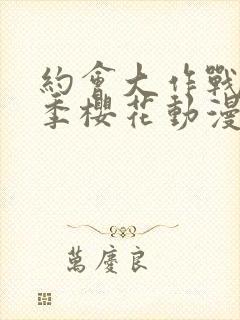 約會大作戰
季櫻花動漫
萬慶良